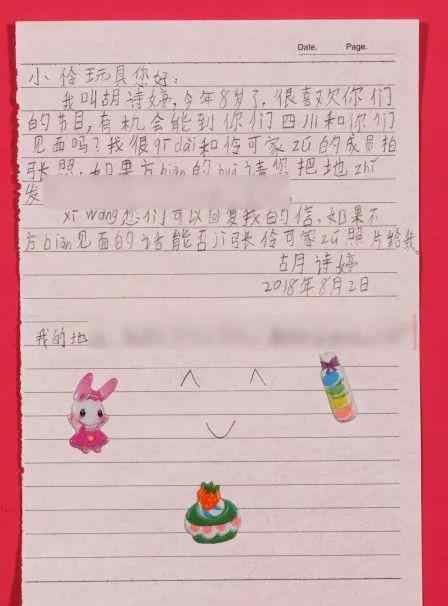 Date. Page.
小伶玩具你好:
我叫胡诗婷,今年8岁了,很喜欢你们
的节目,有机会能到你们四川和你们
见面吗?我很qi dai和伶可家zu的成员拍
张照,如果方biàn的huà请你把地zhǐ
发
xī wàng您们可以回复我的信,如果不
方biàn见面的话能否jì张伶可家zú照片给我
胡诗婷
2018年8月2日
我的地